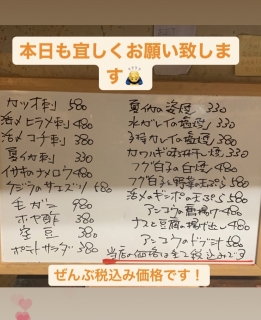 本日も宜しくお願い致しま
す🙇
カツオ刺 580
活〆ヒラメ刺 480
活〆コチ刺 380
夏イカ刺 330
イサキナメロウ 480
クジラのサエズリ 680
毛ガニ 980
ホヤ酢 380
空豆 380
ポテトサラダ 380
夏イカの姿焼 330
水ガレイの塩焼 330
子持ガレイの塩焼 380
カワハギの
焼 330
フグ白子の白焼 480
フグ白子と野菜の天ぷら 580
活〆メギンポの天ぷら 580
アンコウの唐揚げ 480
ナスと豆腐の揚げ出し 480
アンコウのドブ汁 580
当店の価格は全て税込みです
ぜんぶ税込み価格です！